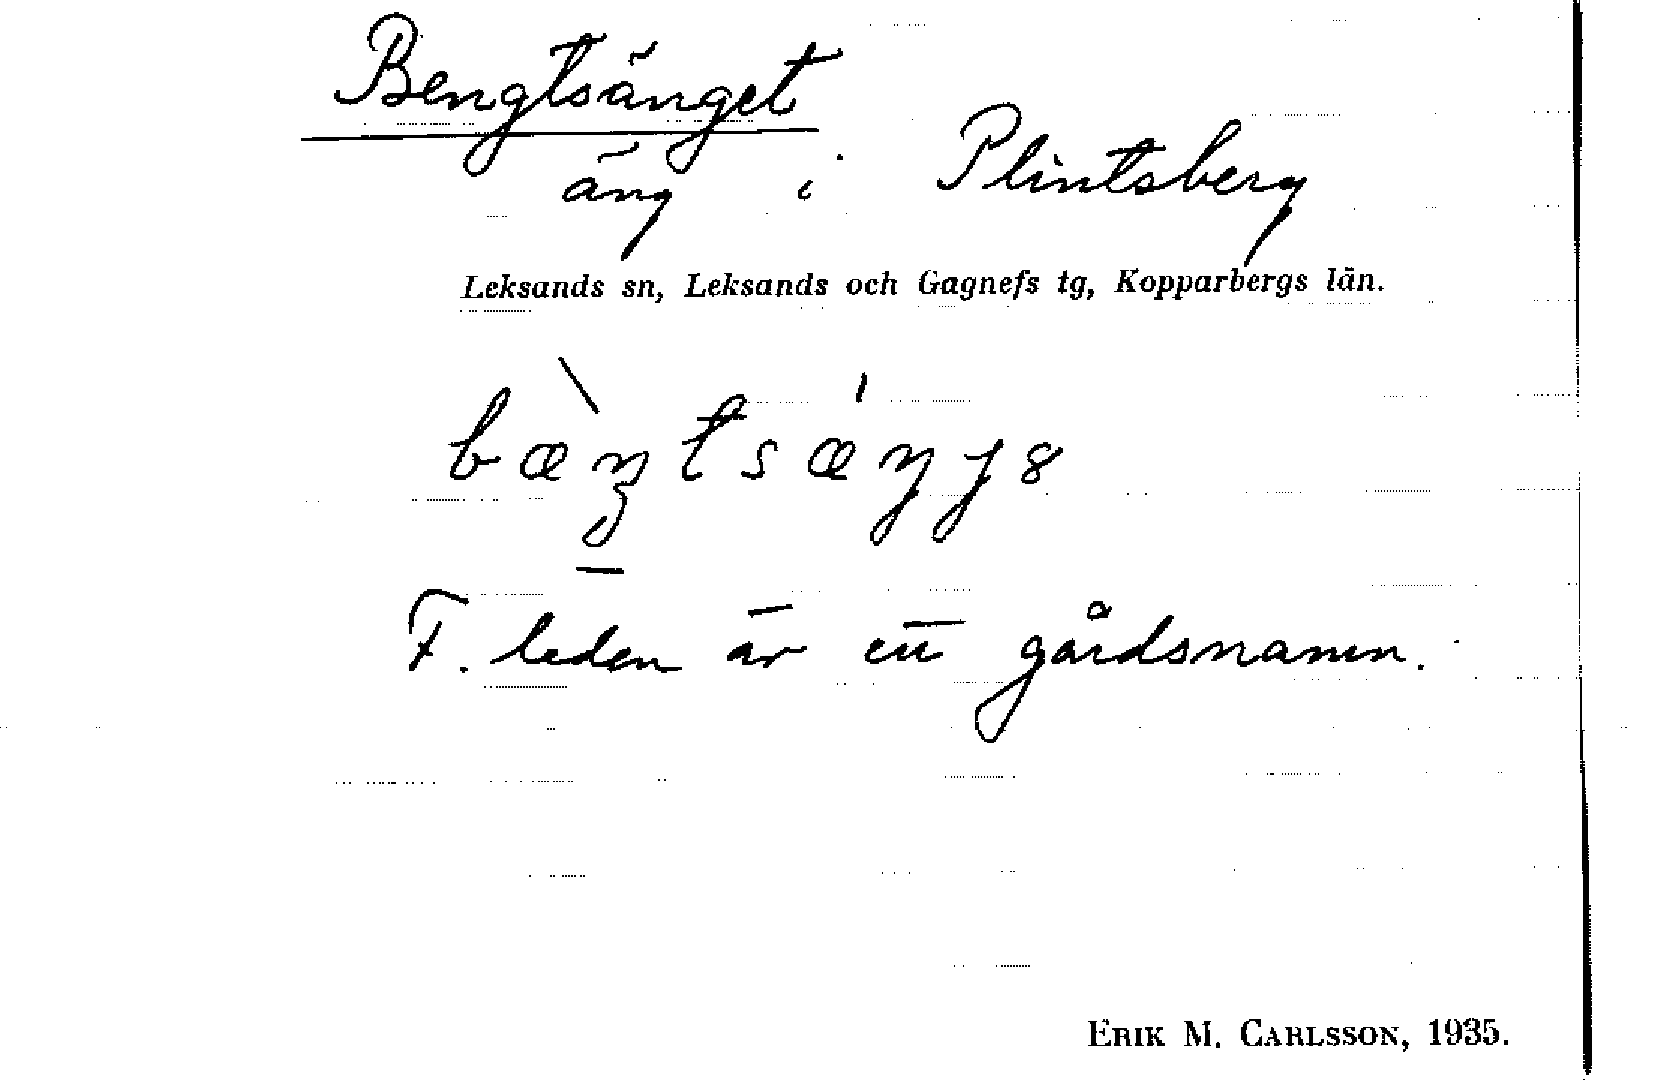 Bengtsänget
äng i Plintsberg
Leksands sn, Leksands och Gagnefs tg, Kopparbergs län.
F. leden är ett gårdsnamn.
ERIK M. CARLSSON, 1935.